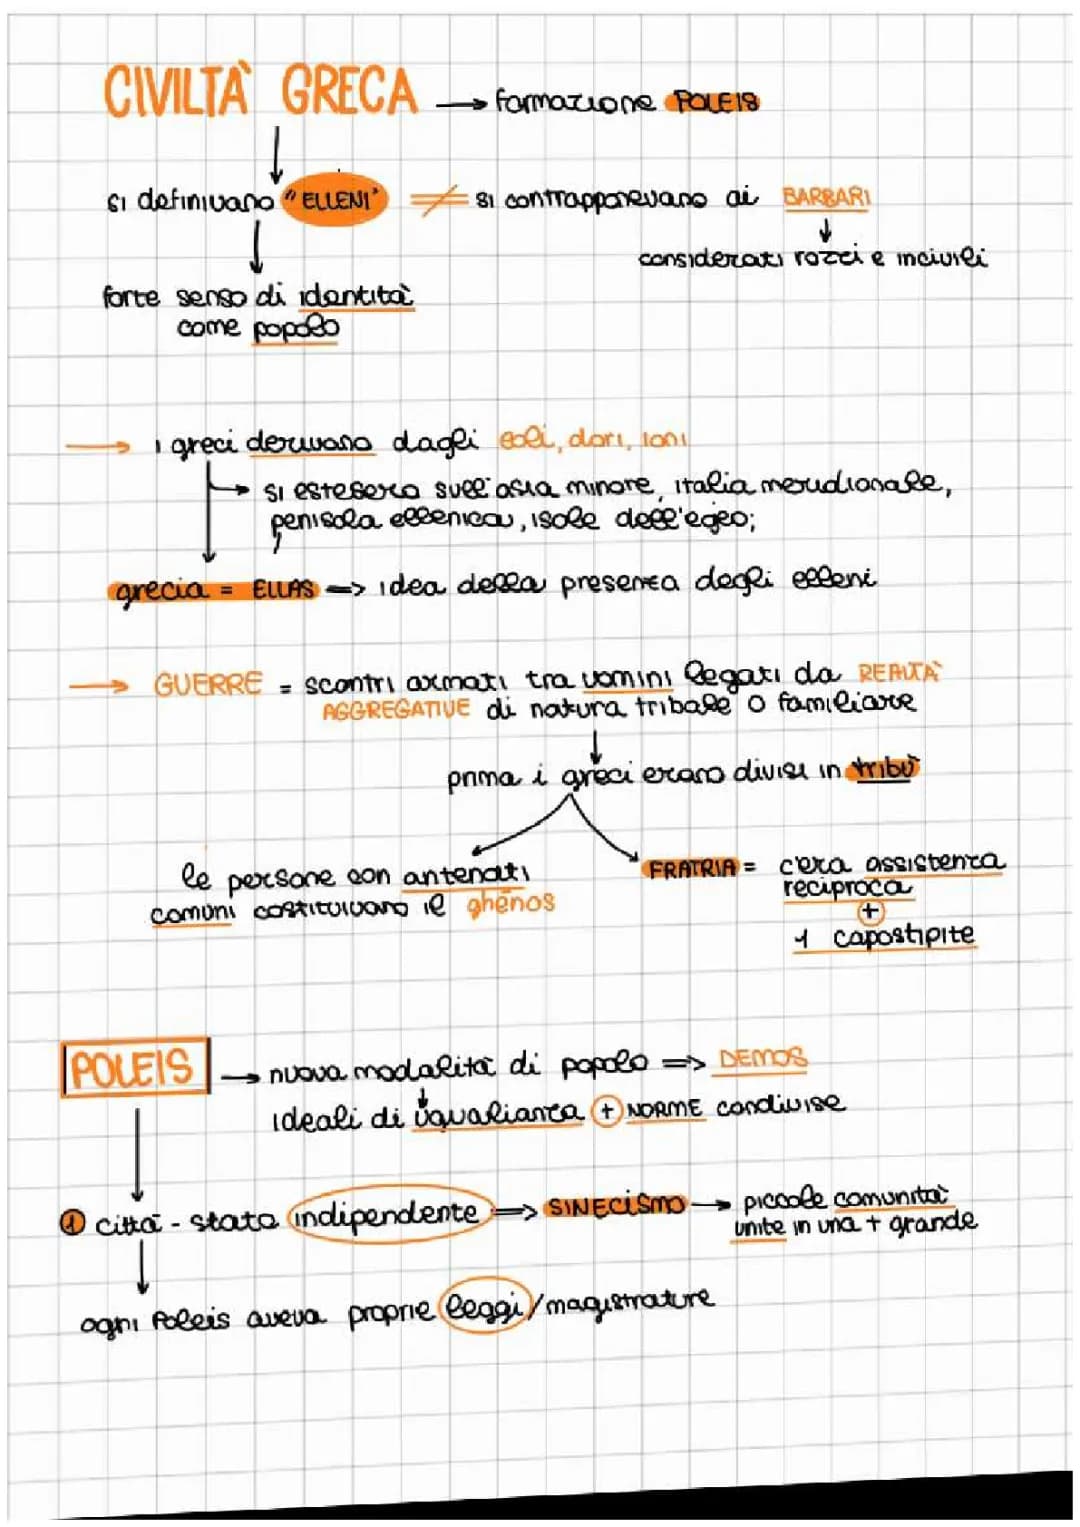 CIVILTÀ GRECA → formazione POLEIS
si definivano "ELLENI" ≠ si contrapponevano ai BARBARI
considerati rozzi e incivili
forte senso di identità
come popolo
→ i greci derivano dagli eoli, dori, ioni
si estesero sull'asia minore, italia meridionale,
penisola ellenica, isole dell'egeo;
grecia = ELLAS => idea della presenza degli elleni
→ GUERRE = scontri armati tra uomini legati da REALTÀ
AGGREGATIVE di natura tribale o familiare
prima i greci erano divisi in tribù
le persone con antenati
comuni costituivano il ghénos
FRATRIA = c'era assistenza
reciproca
+
1 capostipite
POLEIS → nuova modalità di popolo => DEMOS
ideali di uguaglianza + NORME condivise
1 città - stato indipendente => SINECISMO → piccole comunità
unite in una + grande
ogni Poleis aveva proprie leggi / magistrature